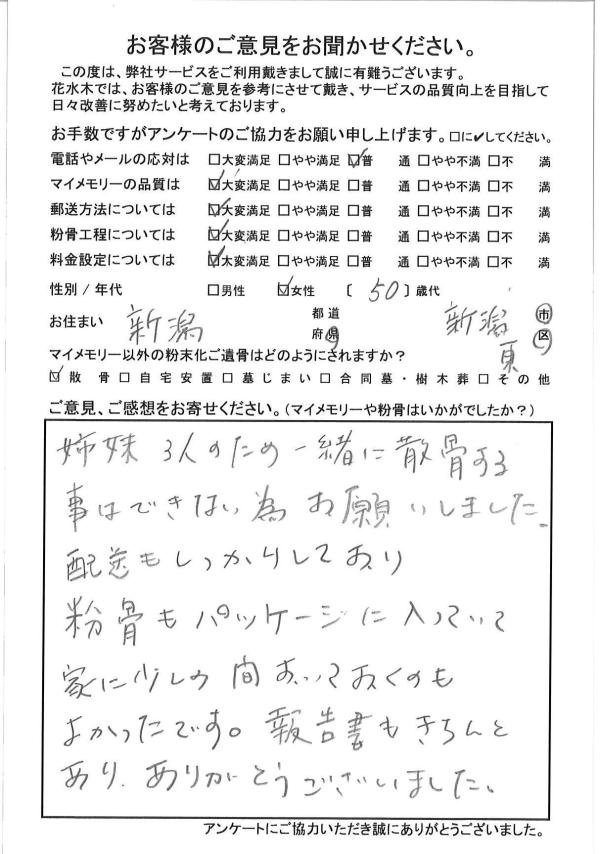 お客様のご意見をお聞かせください。
この度は、弊社サービスをご利用戴きまして誠に有難うございます。
花水木では、お客様のご意見を参考にさせて戴き、サービスの品質向上を目指して
日々改善に努めたいと考えております。
お手数ですがアンケートのご協力をお願い申し上げます。□に✔してください。
電話やメールの応対は □大変満足 □やや満足 ☑普 通 □やや不満 □不 満
マイメモリーの品質は ☑大変満足 □やや満足 □普 通 □やや不満 □不 満
郵送方法については ☑大変満足 □やや満足 □普 通 □やや不満 □不 満
粉骨工程については ☑大変満足 □やや満足 □普 通 □やや不満 □不 満
料金設定については ☑大変満足 □やや満足 □普 通 □やや不満 □不 満
性別 / 年代 □男性 ☑女性 〔 50 〕歳代
お住まい 新潟 都 道 府 県 新潟 東 市 区
マイメモリー以外の粉末化ご遺骨はどのようにされますか?
☑散 骨 □自宅安置 □墓じまい □合同墓・樹木葬 □その他
ご意見、ご感想をお寄せください。(マイメモリーや粉骨はいかがでしたか?)
姉妹 3人のため一緒に散骨する
事はできない為 お願いしました。
配送もしっかりしており
粉骨も パッケージに入っていて
家に少しの間 おいておくのも
よかったです。報告書もきちんと
あり、ありがとうございました。
アンケートにご協力いただき誠にありがとうございました。